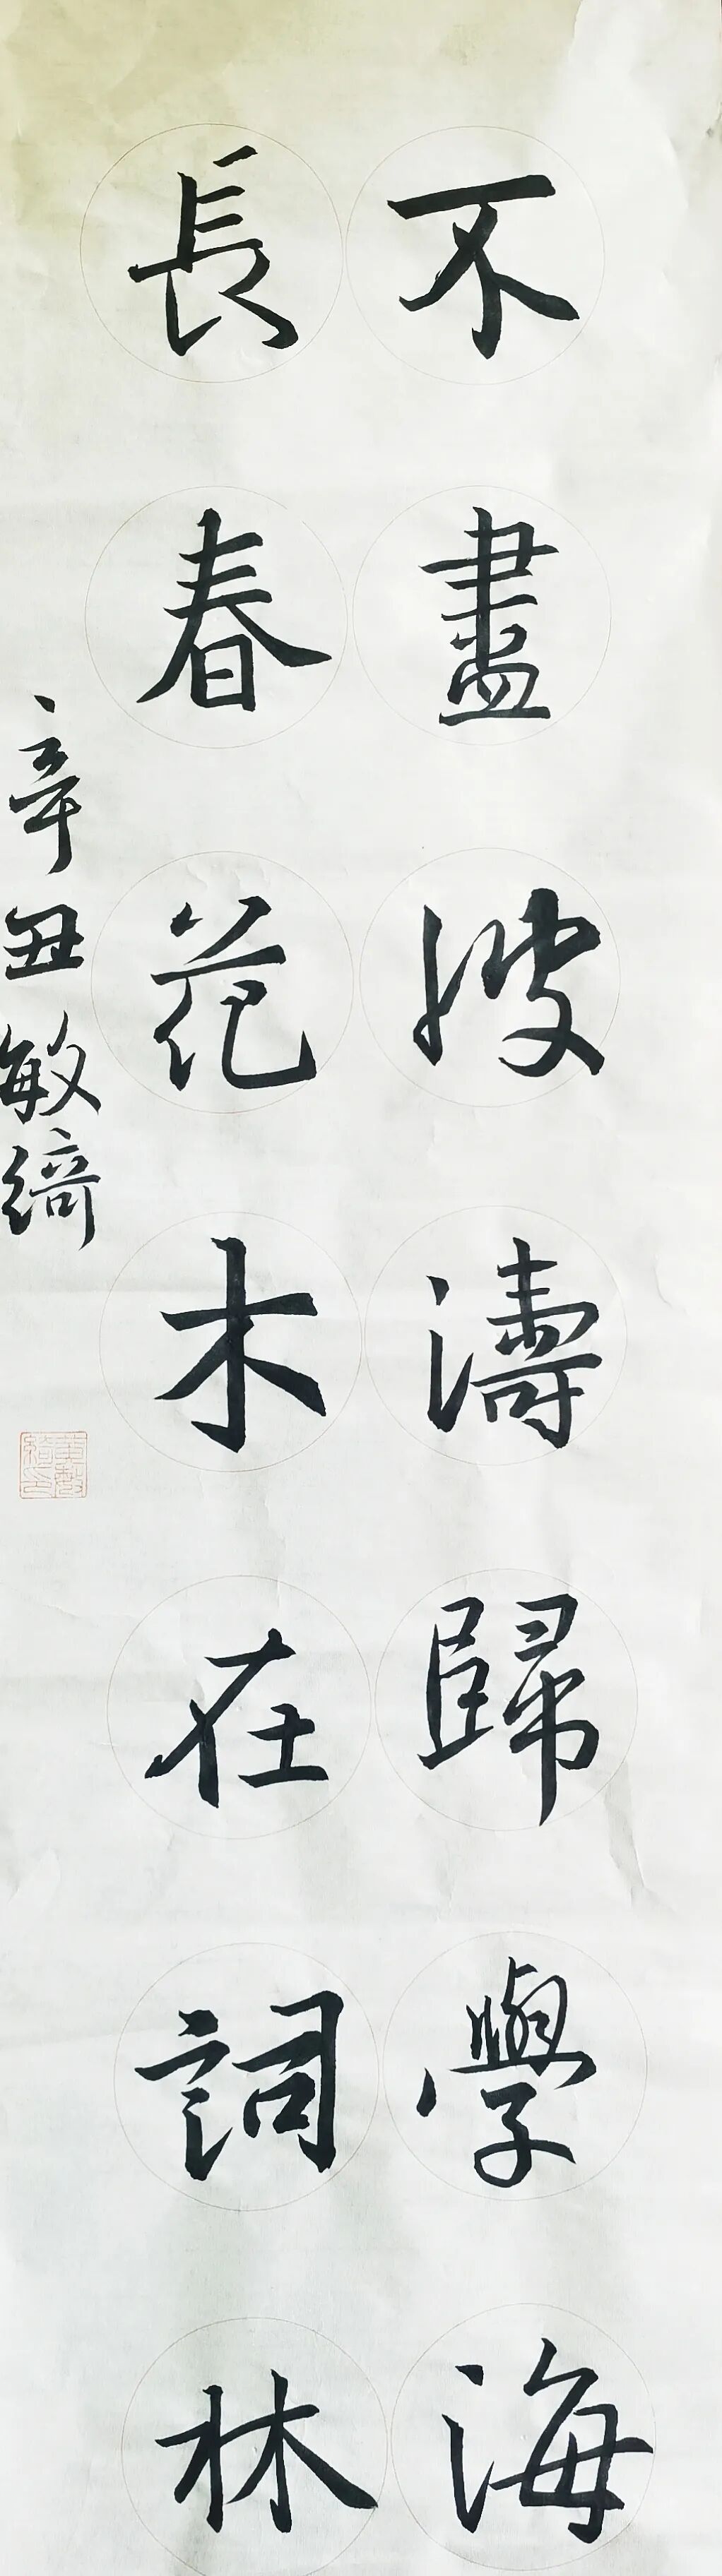 不盡波濤歸學海
長春花木在詞林
辛丑敏綺